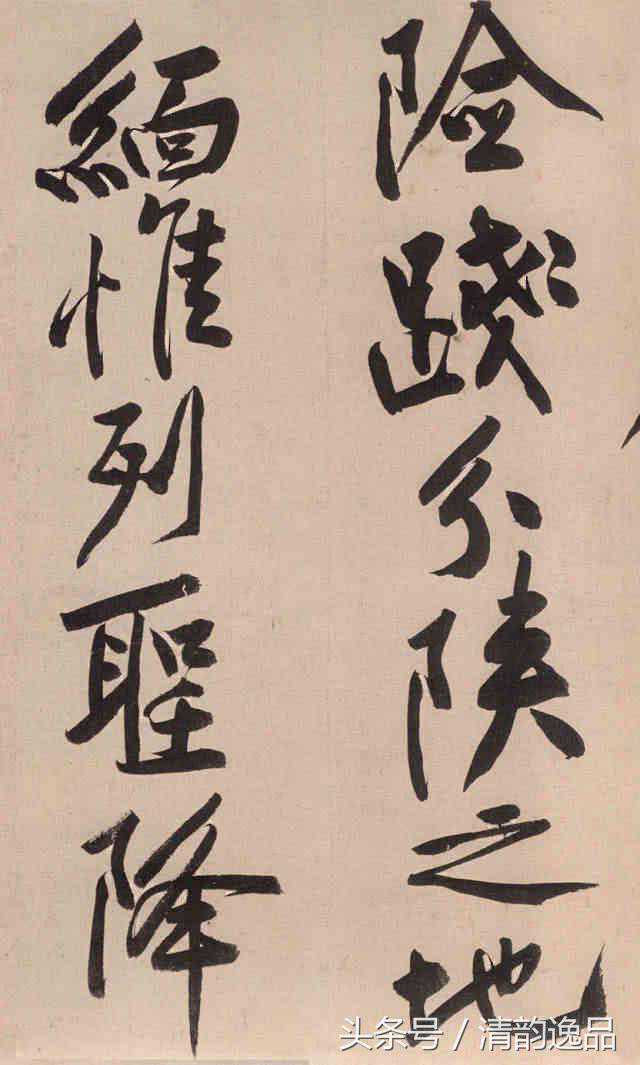 險踐分陝之地
緬惟列聖降
头条号 / 清韵逸品